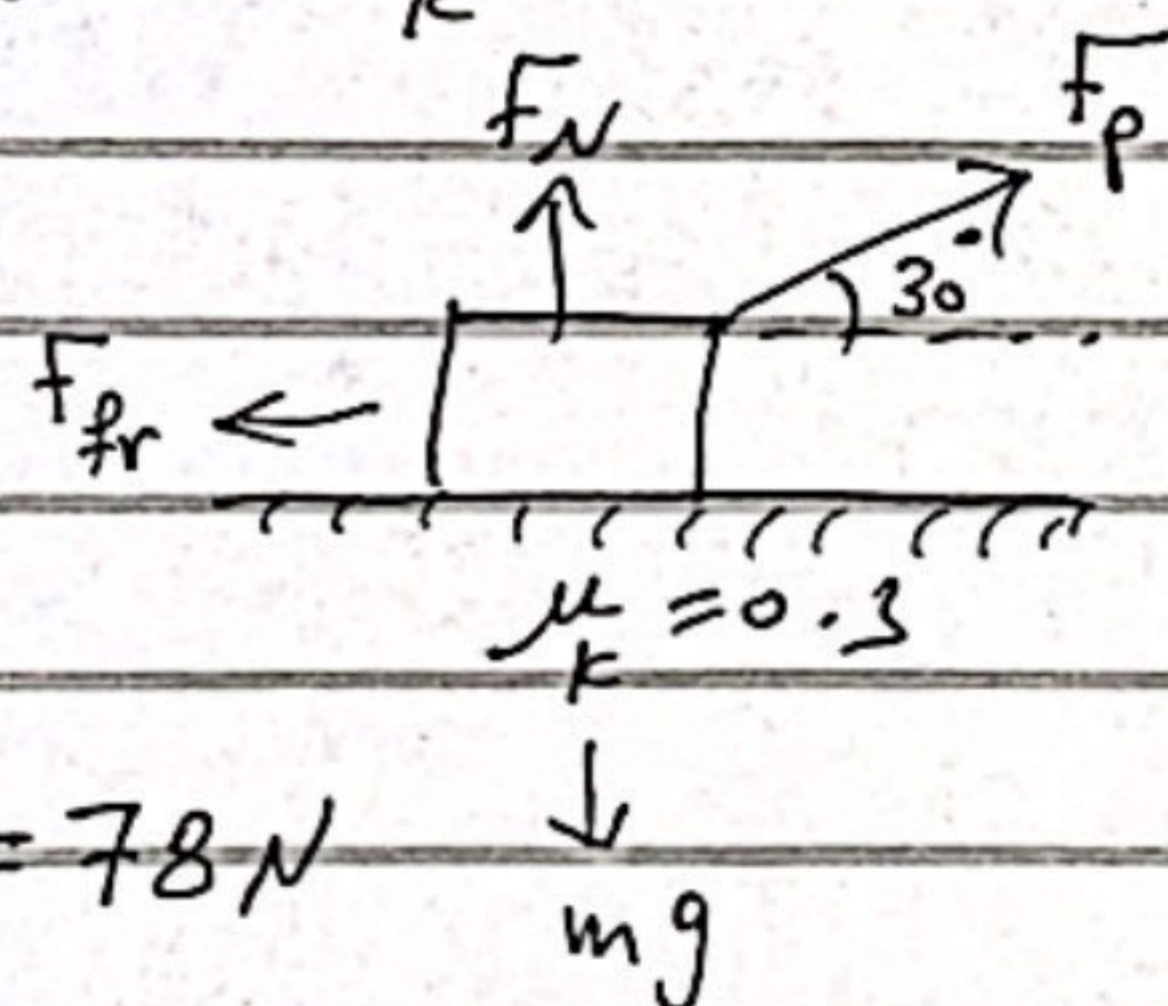 k
F_N
F_p
30°
F_fr
μ_k = 0.3
= 78 N
mg